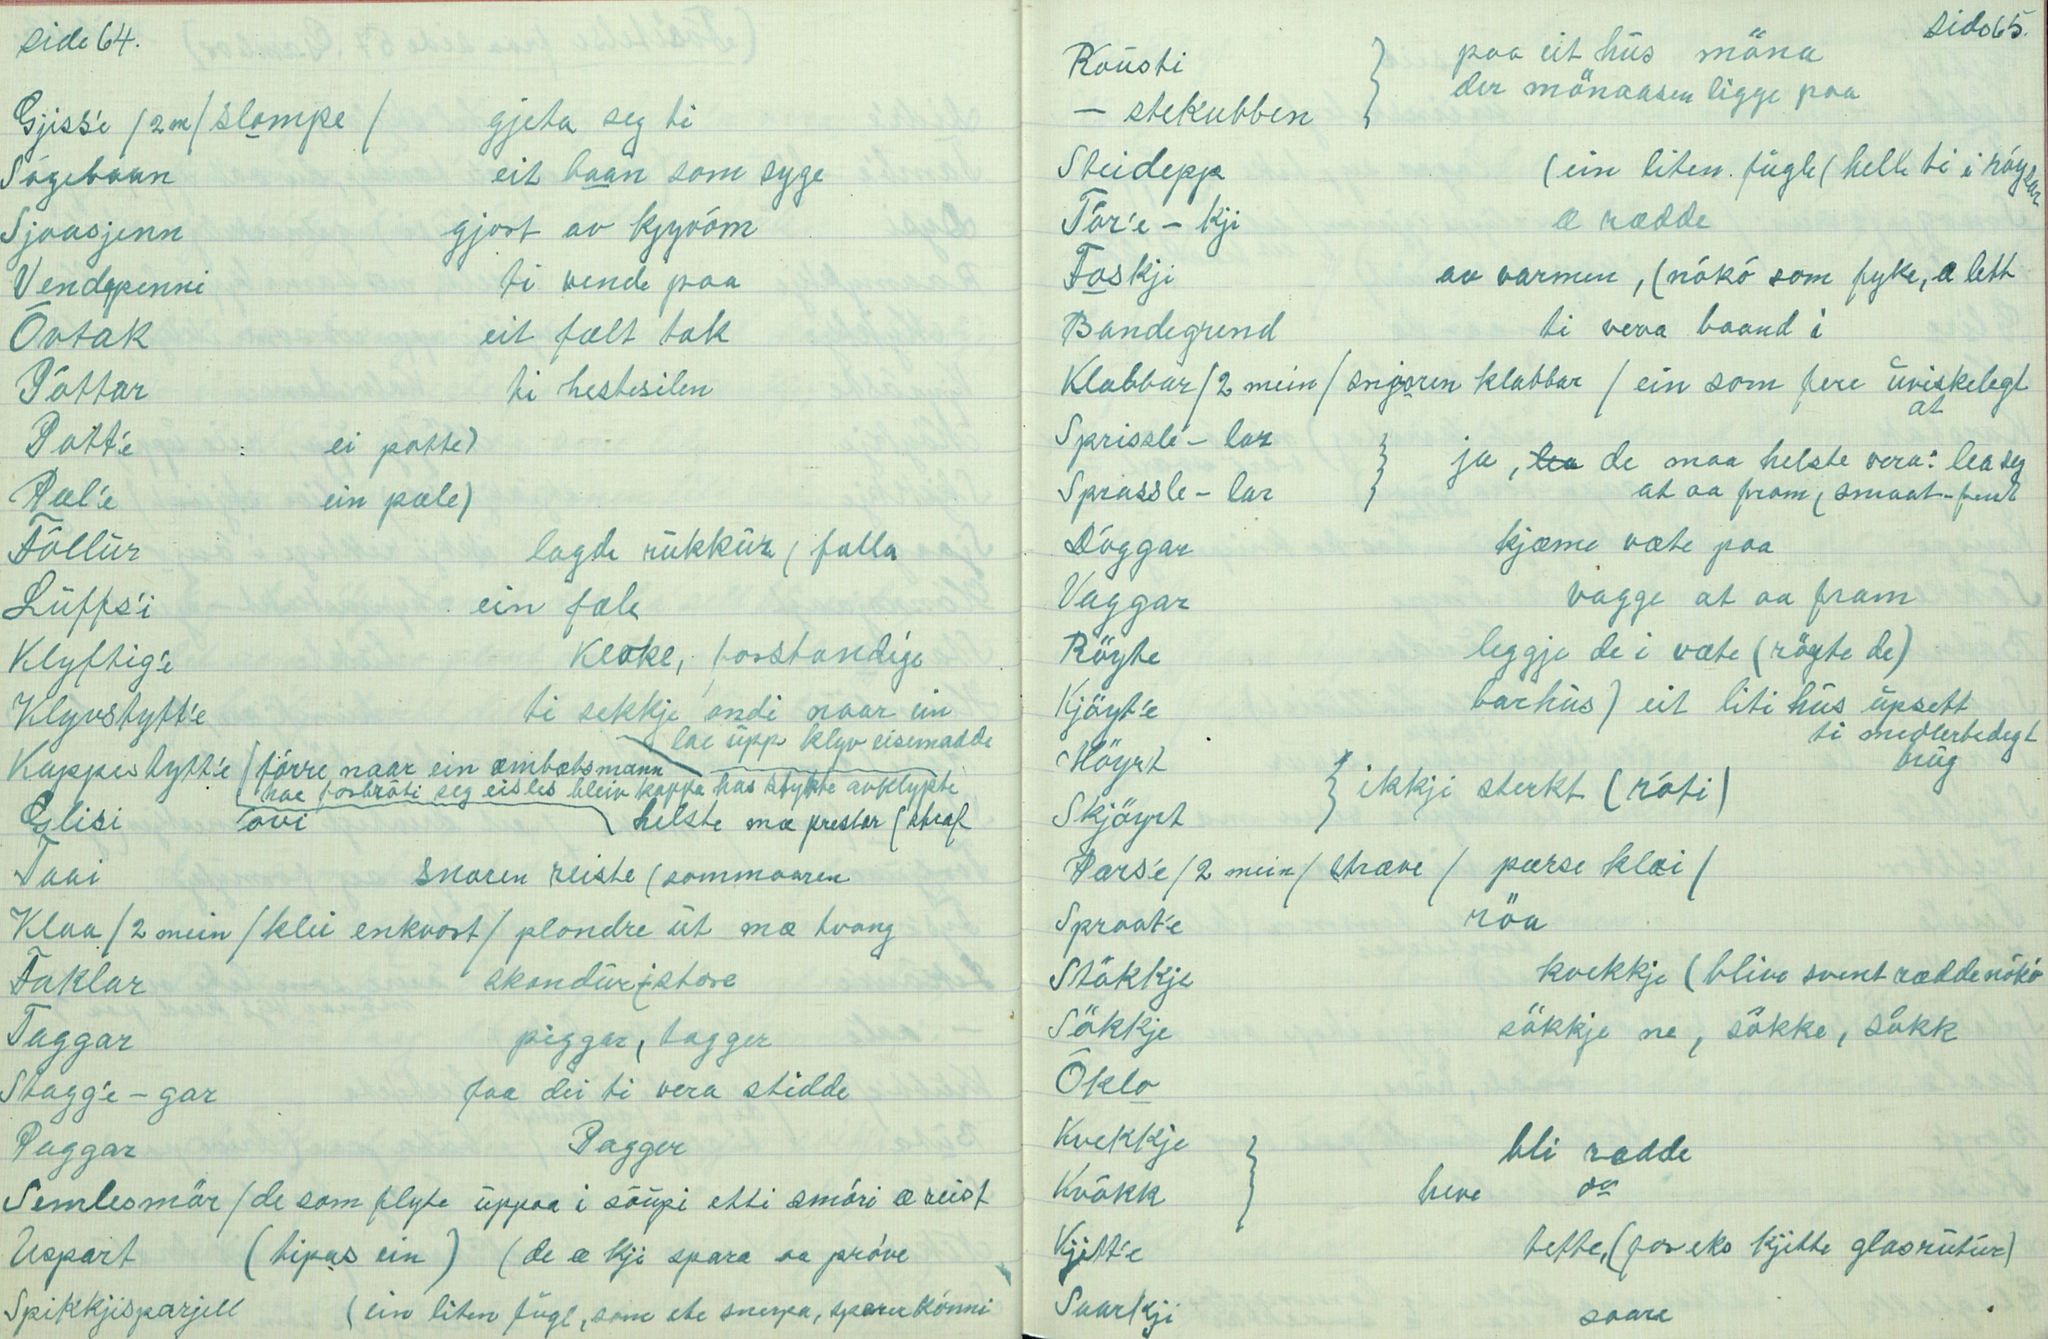 side 64.
Gjiss'e /2m/ slompe / gjeta seg ti
Sógebaan eit baan som syge
Sjoasjenn gjort av kjyröm
Vendepenni ti vende paa
Övtak eit fælt tak
Póttar ti hestesilen
Pott'e : ei potte)
Pæl'e ein pæle)
Föllür lagde rükkür ( falla
Lüffs'i ein fæle
Klyftig'e kloke, forstandíge
Klyvstytt'e ti sekkje ondi naar ein
lae üpp klyv eisemadde
Kappestytt'e ( förre naar ein æmbætsmann
hae forbróti seg eisles bleiv kappa has stytte avklypte
Glisi óvi helste mæ prestar ( straf
Taai snaren reiste ( sommaaren
Klaa /2 mein / klei enkvort / plondre üt mæ tvang
Faklar skandür ( store
Taggar piggar, tagger
Stagg'e - gar faa dei ti vera stidde
Paggar Pagger
Semlesmör / de som flyte üppaa i söüpi etti smóri æ reist
Uspart (tipas ein) (de æ kji spara aa próve
Spikkjisparjell ( ein liten fügl, som ete snerpa, sparer kónni
side 65.
Roüsti } paa eit hüs möna
- stekubben der mönaasen ligge paa
Steidepp (ein liten fügle ( helle ti i röysar
Tór'e - kji æ rædde
Foskji av varmen, (nókó som fyke, æ lett
Bandegrend ti veva baand i
Klabbar / 2 mein / snjoren klabbar / ein som fere üviskelegt
at
Sprissle - lar } ja, de maa helste vera: lea seg
Sprassle - lar at aa fram, smaat-fent
Dóggar kjæme væte paa
Vaggar vagge at aa fram
Röyte leggje de i væte (röyte de)
Kjöyt'e barhüs) eit liti hüs üpsett
ti medlerbedegt
Höyrt brüg
} ikkji sterkt (róti)
Skjöyrt
Pærs'e / 2 mein / stræve / pærse klæi /
Spraat'e röa
Stökkje kvekkje (blive svent rædde nókó
Sökkje sökkje ne, sökke, sökk
Öklo
Kvekkje } bli rædde
Kvökk heve
Kjitt'e tette, (for eks kjitte glasrütür)
Saarkji saare